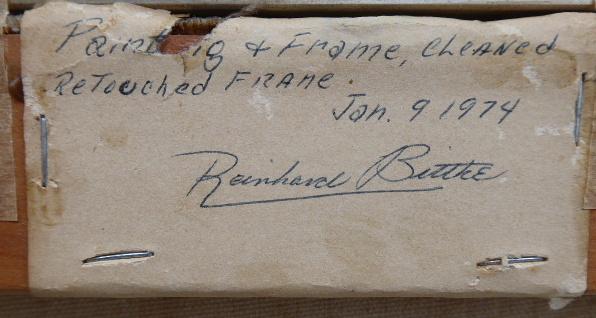 Painting & Frame, Cleaned
Retouched Frame.
Jan. 9 1974
Reinhard Bittke